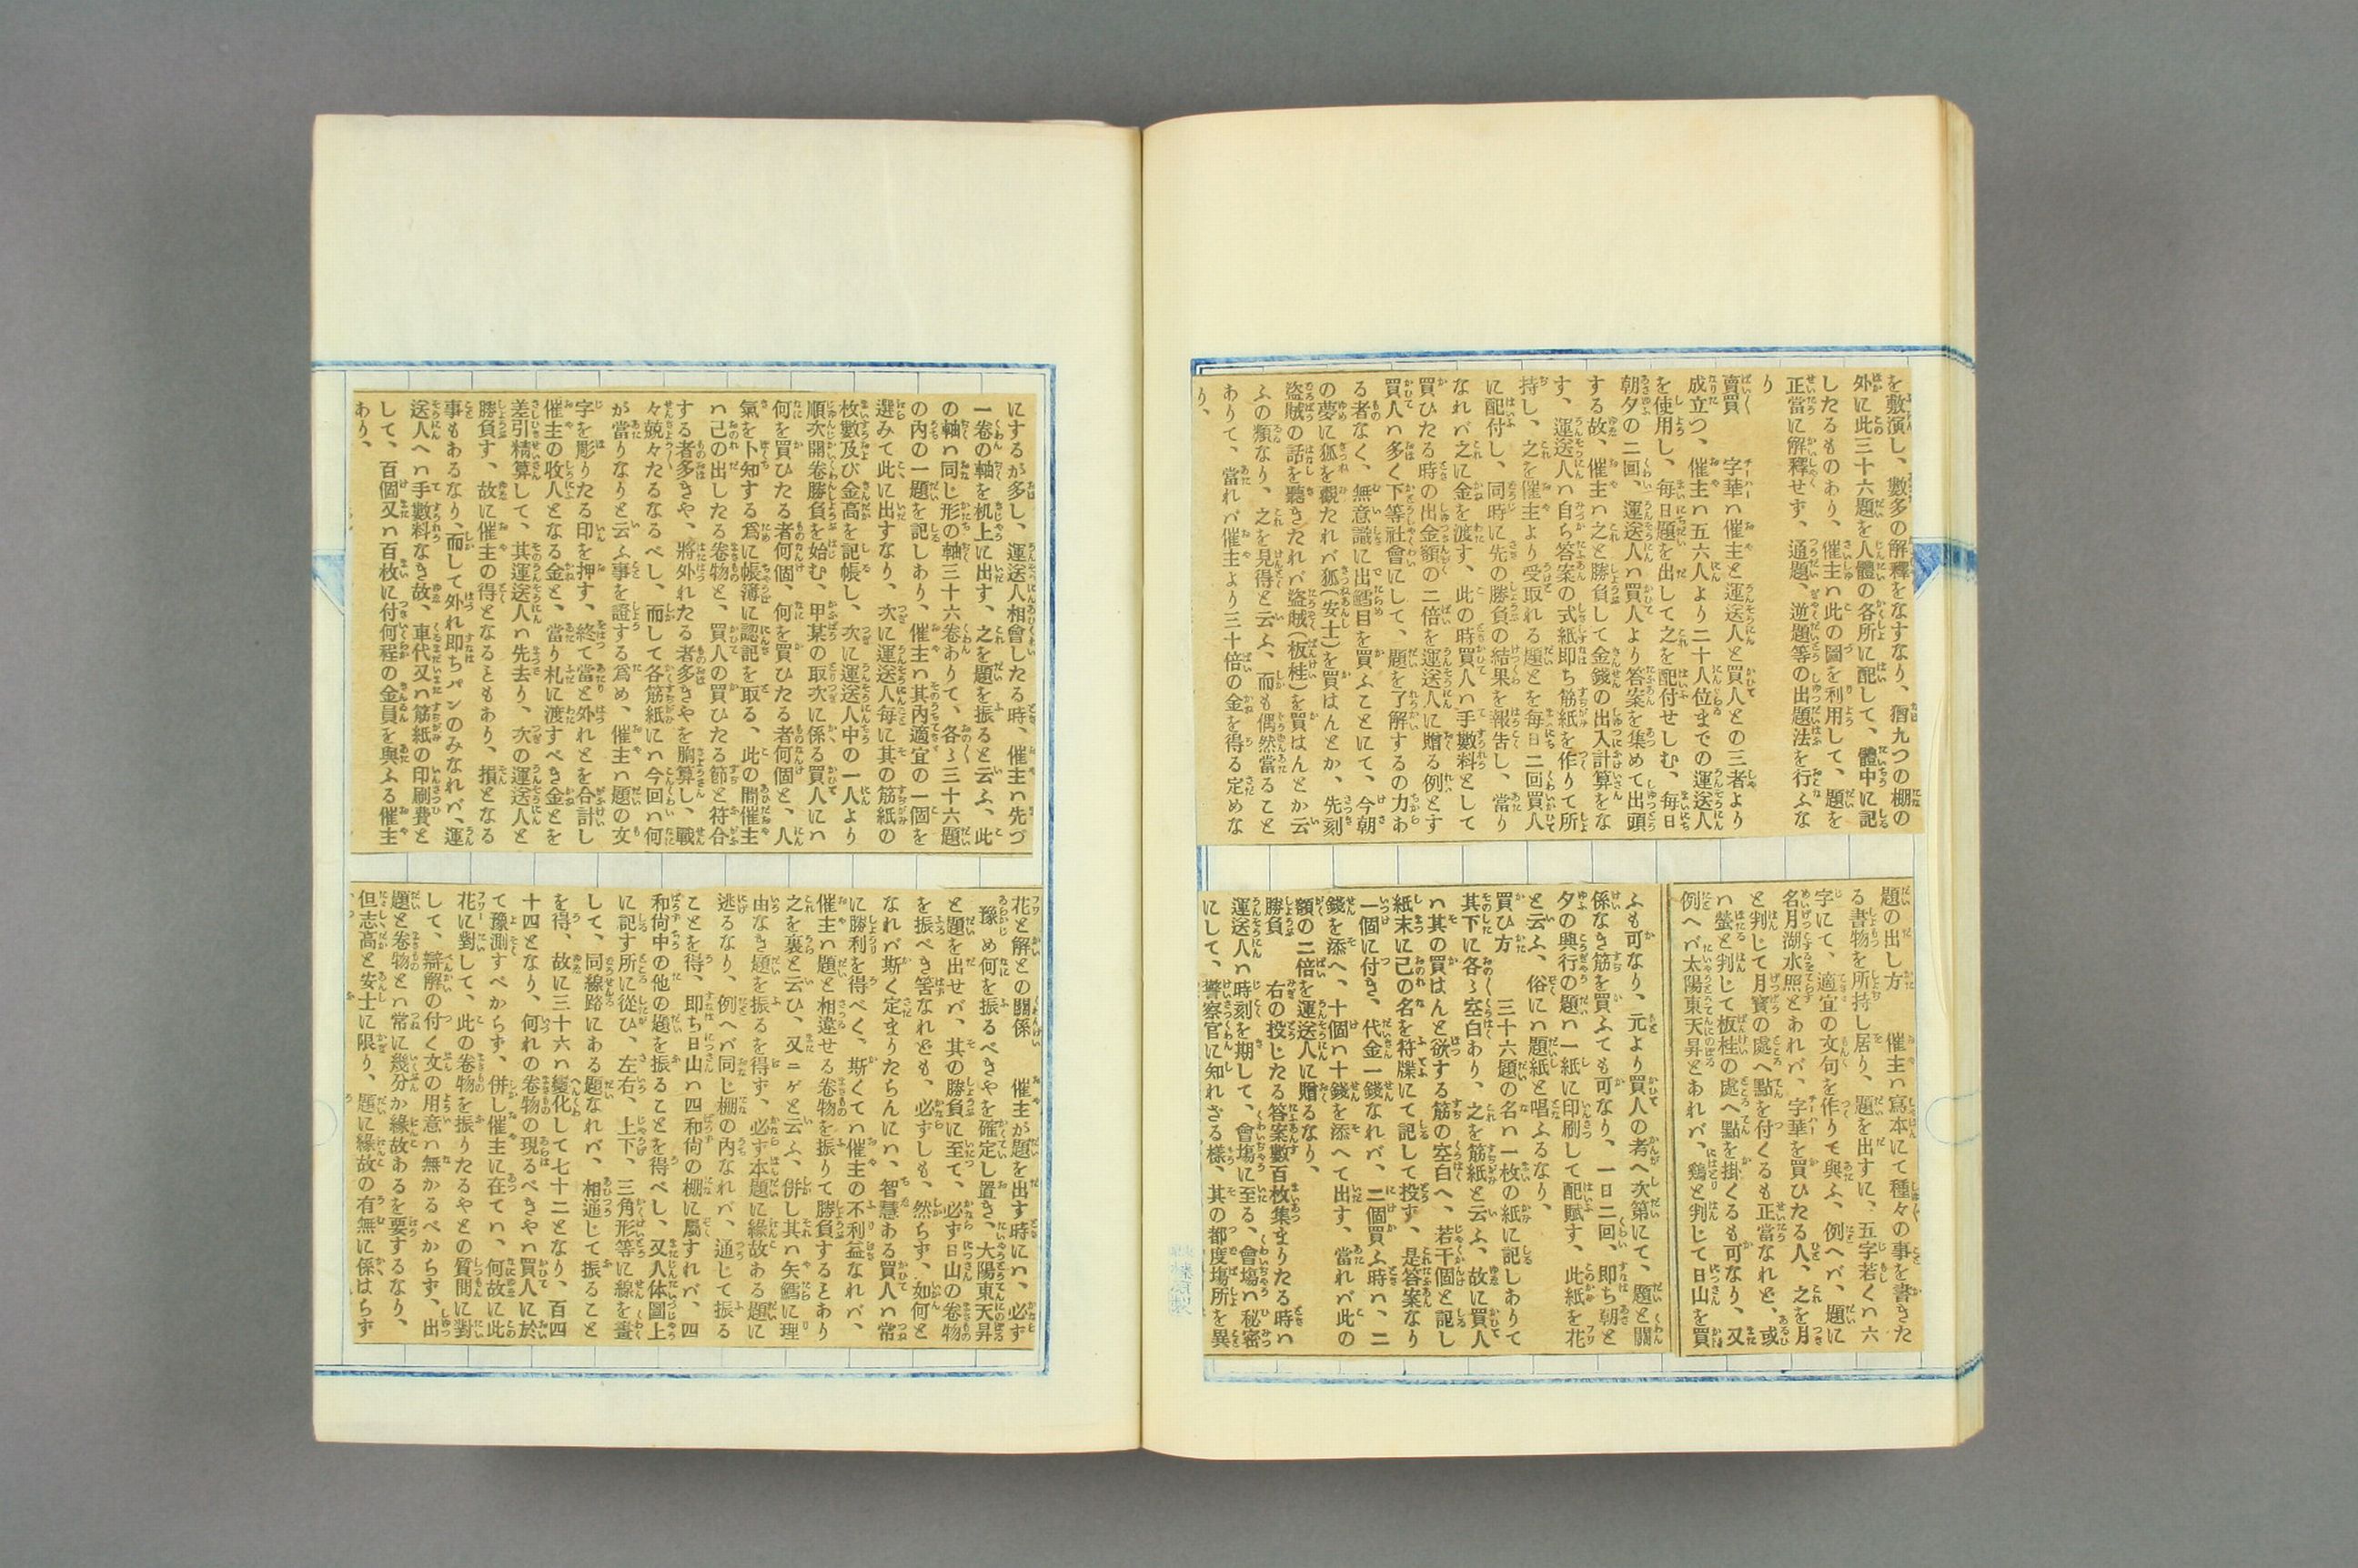 を敷演し、數多の解釋をなすなり、猶九つの棚の
外に此三十六題を人體の各所に配して、體中に記
したるものあり、催主ハ此の圖を利用して、題を
正當に解釋せす、通題、逆題等の出題法を行ふな
り
賣買　字華ハ催主と運送人と買人との三者より
成立つ、催主ハ五六人より二十人位までの運送人
を使用し、毎日題を出して之を配付せしむ、毎日
朝夕の二回、運送人ハ買人より答案を集めて出頭
する故、催主ハ之と勝負して金錢の出入計算をな
す、運送人ハ自ら答案の式紙即ち筋紙を作りて所
持し、之を催主より受取れる題とを毎日二回買人
に配付し、同時に先の勝負の結果を報吿し、當り
なれバ之に金を渡す、此の時買人ハ手數料として
買ひたる時の出金額の二倍を運送人に贈る例とす
買人ハ多く下等社會にして、題を了解するの力あ
る者なく、無意識に出鱈目を買ふことにて、今朝
の夢に狐を觀たれバ狐(安士)を買はんとか、先刻
盜賊の話を聽きたれバ盜賊(板桂)を買はんとか云
ふの類なり、之を見得と云ふ、而も偶然當ること
ありて、當れバ催主より三十倍の金を得る定めな
り、
題の出し方　催主ハ寫本にて種々の事を書きた
る書物を所持し居り、題を出すに、五字若くハ六
字にて、適宜の文句を作りて與ふ、例へバ、題に
名月湖水照とあれバ、字華を買ひたる人、之を月
と判じて月寶の處へ點を付くるも正當なれど、或
ハ螢と判じて板桂の處へ點を掛くるも可なり、又
例へバ太陽東天昇とあれバ、鷄と判じて日山を買
ふも可なり、元より買人の考へ次第にて、題と關
係なき筋を買ふても可なり、一日二回、即ち朝と
夕の興行の題ハ一紙に印刷して配賦す、此紙を花
と云ふ、俗にハ題紙と唱ふるなり、
買ひ方　三十六題の名ハ一枚の紙に記しありて
其下に各〻空白あり、之を筋紙と云ふ、故に買人
ハ其の買はんと欲する筋の空白へ、若干個と記し
紙末に己の名を符牒にて記して投す、是答案なり
一個に付き、代金一錢なれバ、二個買ふ時ハ、二
錢を添へ、十個ハ十錢を添へて出す、當れバ此の
額の二倍を運送人に贈るなり、
勝負　右の投じたる答案數百枚集まりたる時ハ
運送人ハ時刻を期して、會塲に至る、會塲ハ秘密
にして、警察官に知れざる樣、其の都度塲所を異
にするが多し、運送人相會したる時、催主ハ先づ
一卷の軸を机上に出す、之を題を振ると云ふ、此
の軸ハ同じ形の軸三十六卷ありて、各〻三十六題
の內の一題を記しあり、催主ハ其內適宜の一個を
選みて此に出すなり、次に運送人毎に其の筋紙の
枚數及び金高を記帳し、次に運送人中の一人より
順次開卷勝負を始む、甲某の取次に係る買人にハ
何を買ひたる者何個、何を買ひたる者何個と、人
氣を卜知する爲に帳簿に認記を取る、此の間催主
ハ己の出したる卷物と、買人の買ひたる節と符合
する者多きや、將外れたる者多きやを胸算し、戰
々兢々たるなるべし、而して各筋紙にハ今回ハ何
が當りなりと云ふ事を證する爲め、催主ハ題の文
字を彫りたる印を押す、終て當と外れとを合計し
催主の收入となる金と、當り札に渡すべき金とを
差引精算して、其運送人ハ先去り、次の運送人と
勝負す、故に催主の得となるともあり、損となる
事もあるなり、而して外れ即ちパンのみなれバ、運
送人へハ手數料なき故、車代又ハ筋紙の印刷費と
して、百個又ハ百枚に付何程の金員を與ふる催主
あり、
花と解との關係　催主が題を出す時にハ、必す
豫め何を振るべきやを確定し置き、大陽東天昇
と題を出せバ、其の勝負に至て、必す日山の卷物
を振べき筈なれども、必ずしも、然らず、如何と
なれバ斯く定まりたらんにハ、智慧ある買人ハ常
に勝利を得べく、斯くてハ催主の不利益なれバ、
催主ハ題と相違せる卷物を振りて勝負するとあり
之を裏と云ひ、又ニゲと云ふ、併し其ハ矢鱈に理
由なき題を振るを得ず、必す本題に緣故ある題に
逃るなり、例へバ同じ棚の內なれバ、通じて振る
ことを得、即ち日山ハ四和尙の棚に屬すれバ、四
和尙中の他の題を振ることを得べし、又人体圖上
に記す所に從ひ、左右、上下、三角形等に線を畫
して、同線路にある題なれバ、相通じて振ること
を得、故に三十六ハ變化して七十二となり、百四
十四となり、何れの卷物の現るべきやハ買人に於
て豫測すべからず、併し催主に在てハ、何故に此
花に對して、此の卷物を振りたるやとの質問に對
して、辯解の付く文の用意ハ無かるべからず、出
題と卷物とハ常に幾分か緣故あるを要するなり、
但志高と安士に限り、題に緣故の有無に係はらず